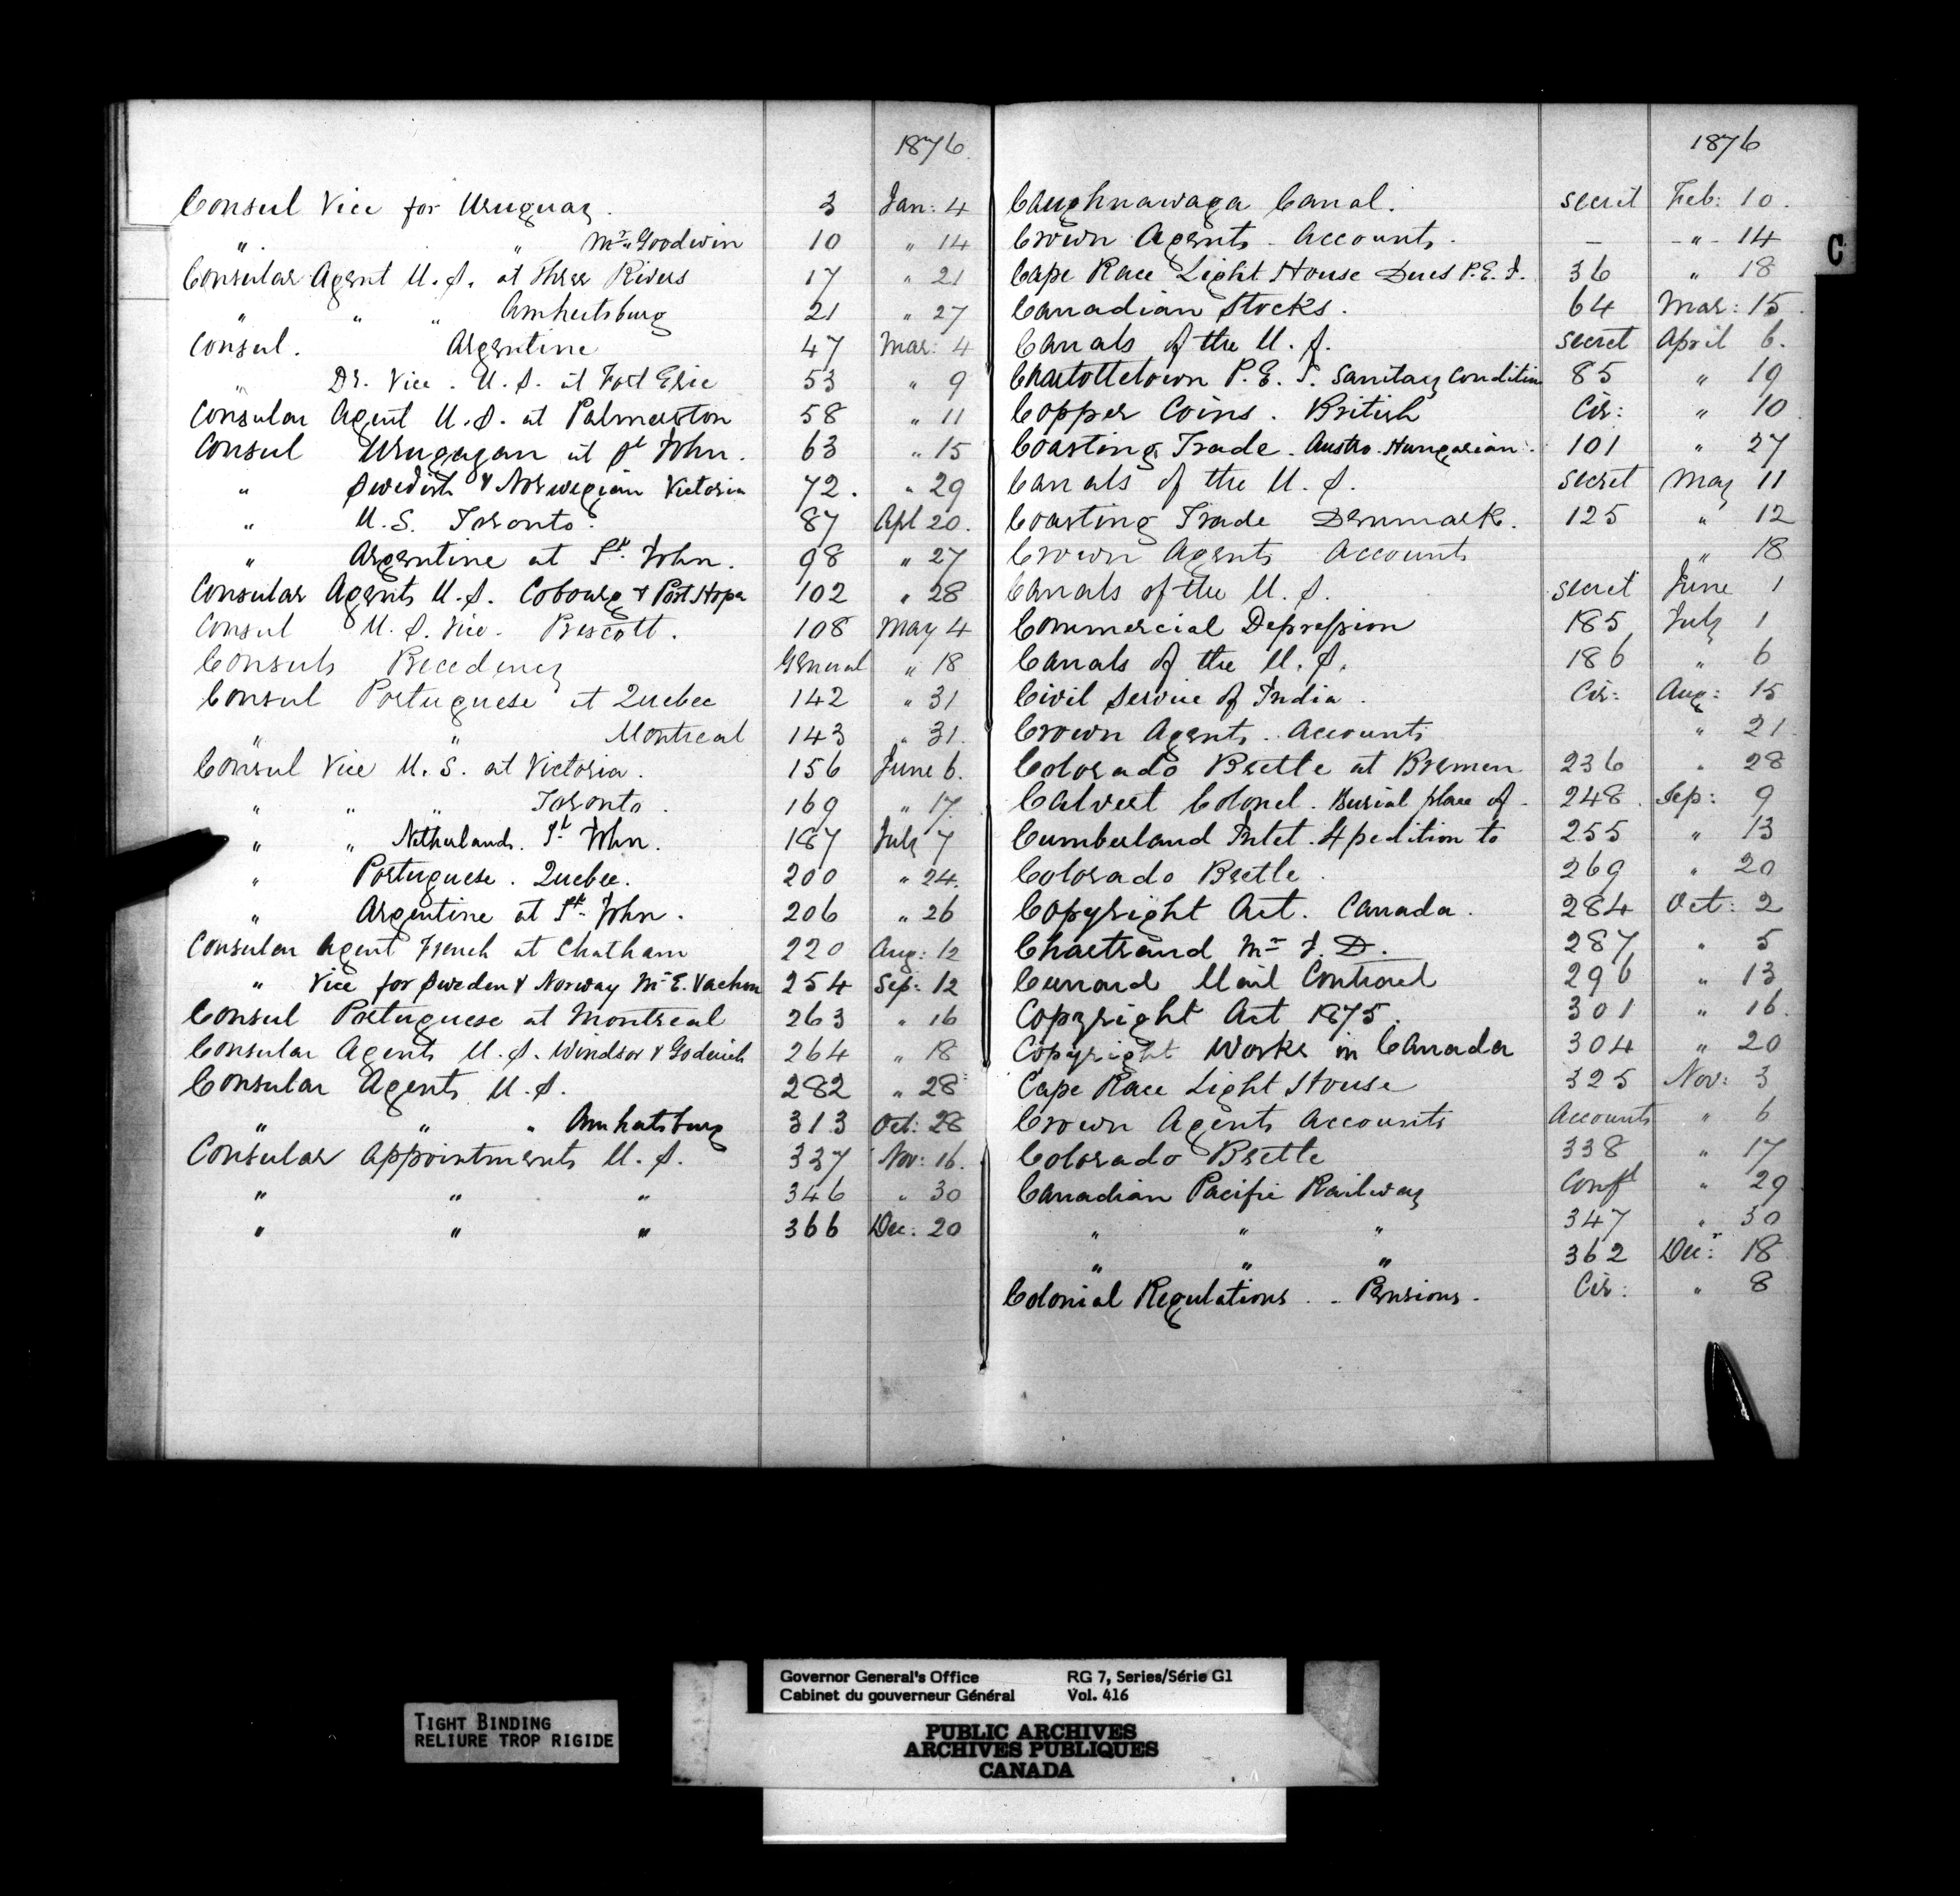 1876
Consul Vice for Uruguay. 3 Jan: 4
" " Mr. Goodwin 10 " 14
Consular Agent U.S. at Three Rivers 17 " 21
" " " Amherstburg 21 " 27
Consul. Argentine 47 Mar: 4
" Do. Vice. U.S. at Fort Erie 53 " 9
Consular Agent U.S. at Palmerston 58 " 11
Consul Urugayan at St John. 63 " 15
" Swedish & Norwegian Victoria 72. " 29
" U.S. Toronto. 87 Apl 20.
" Argentine at St. John. 98 " 27
Consular Agents U.S. Cobourg & Port Hope 102 " 28
Consul U.S. Vice. Prescott. 108 May 4
Consuls Precedency General " 18
Consul Portuguese at Quebec 142 " 31
" " Montreal 143 " 31.
Consul Vice U.S. at Victoria. 156 June 6.
" " " Toronto. 169 " 17.
" " Netherlands. St. John. 187 July 7
" Portuguese. Quebec. 200 " 24.
" Argentine at St. John. 206 " 26
Consular Agent French at Chatham 220 Aug: 12
" Vice for Sweden & Norway Mr E. Vachon 254 Sep: 12
Consul Portuguese at Montreal 263 " 16
Consular Agents U.S. Windsor & Goderich 264 " 18
Consular Agents U.S. 282 " 28
" " " Amherstburg 313 Oct: 28
Consular Appointments U.S. 337 Nov: 16.
" " " 346 " 30
" " " 366 Dec: 20
1876
Caughnawaga Canal. secret Feb: 10.
Crown Agents - Accounts. — - " - 14
Cape Race Light House Dues P.E.I. 36 " 18
Canadian Stocks. 64 Mar: 15.
Canals of the U.S. secret April 6.
Charlottetown P.E.I. Sanitary Condition 85 " 19
Copper Coins. British Cir: " 10
Coasting Trade. Austro-Hungarian. 101 " 27
Canals of the U.S. secret May 11
Coasting Trade Denmark. 125 " 12
Crown Agents Accounts " 18
Canals of the U.S. secret June 1
Commercial Depression 185 July 1
Canals of the U.S. 186 " 6
Civil Service of India. Cir: Aug: 15
Crown Agents. Accounts " 21.
Colorado Beetle at Bremen 236 " 28
Calvert Colonel. Burial place of. 248. Sep: 9
Cumberland Inlet. Xpedition to 255 " 13
Colorado Beetle. 269 " 20
Copyright Act. Canada. 284 Oct: 2
Chartrand Mr J.D. 287 " 5
Cunard Mail Contract 296 " 13
Copyright Act 1875. 301 " 16.
Copyright Works in Canada 304 " 20
Cape Race Light House 325 Nov: 3
Crown Agents Accounts Accounts " 6
Colorado Beetle 338 " 17
Canadian Pacific Railway Confl " 29
" " " 347 " 30
" " " 362 Decr: 18
Colonial Regulations. - Pensions. Cir: " 8
C
Governor General's Office RG 7, Series/Série G1
Cabinet du gouverneur Général Vol. 416
TIGHT BINDING
RELIURE TROP RIGIDE
PUBLIC ARCHIVES
ARCHIVES PUBLIQUES
CANADA